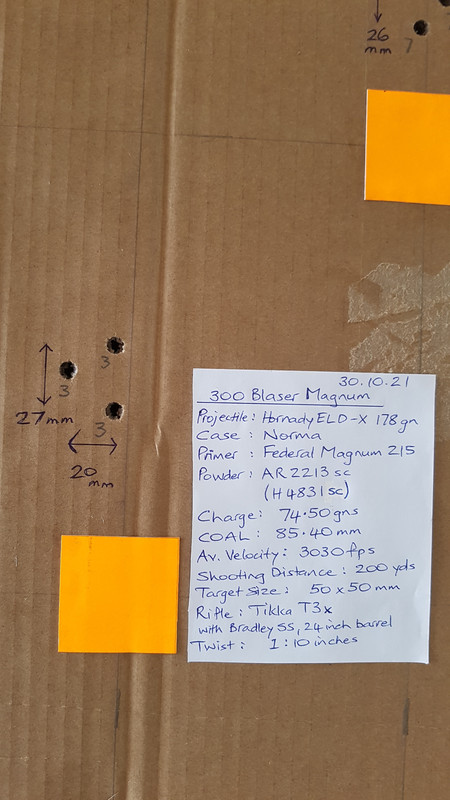 26
mm
7
3
3
27mm
3
20
mm
30.10.21
300 Blaser Magnum
Projectile: Hornady ELD-X 178gn
Case: Norma
Primer: Federal Magnum 215
Powder: AR2213sc
(H4831sc)
Charge: 74.50gns
COAL: 85.40mm
Av. Velocity: 3030fps
Shooting Distance: 200 yds
Target Size: 50x50mm
Rifle: Tikka T3x
with Bradley SS, 24 inch barrel
Twist: 1:10 inches